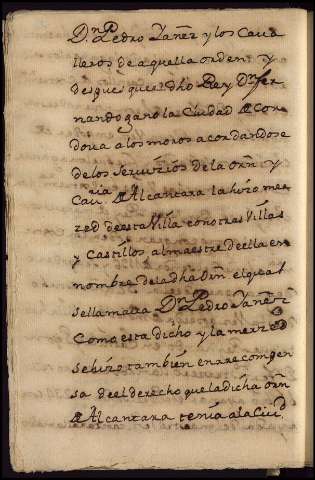 Dn. Pedro Yañez y los Cava
lleros de aquella orden y
despues que el dho Rey Dn. fer
nando gano la Ciudad de Cor
doua a los moros acordandose
de los servicios de la orn y
Cavria. de Alcantara la hizo mer
zed de esta Villa con otras Villas
y Castillos al maestre de ella en
nombre de la dha orn el qual
se llamava Dn. Pedro Yañez
Como esta dicho y la merzed
se hizo tambien en rrecompen
sa de el derecho que la dicha orn
de Alcantara tenia a la Ciud.